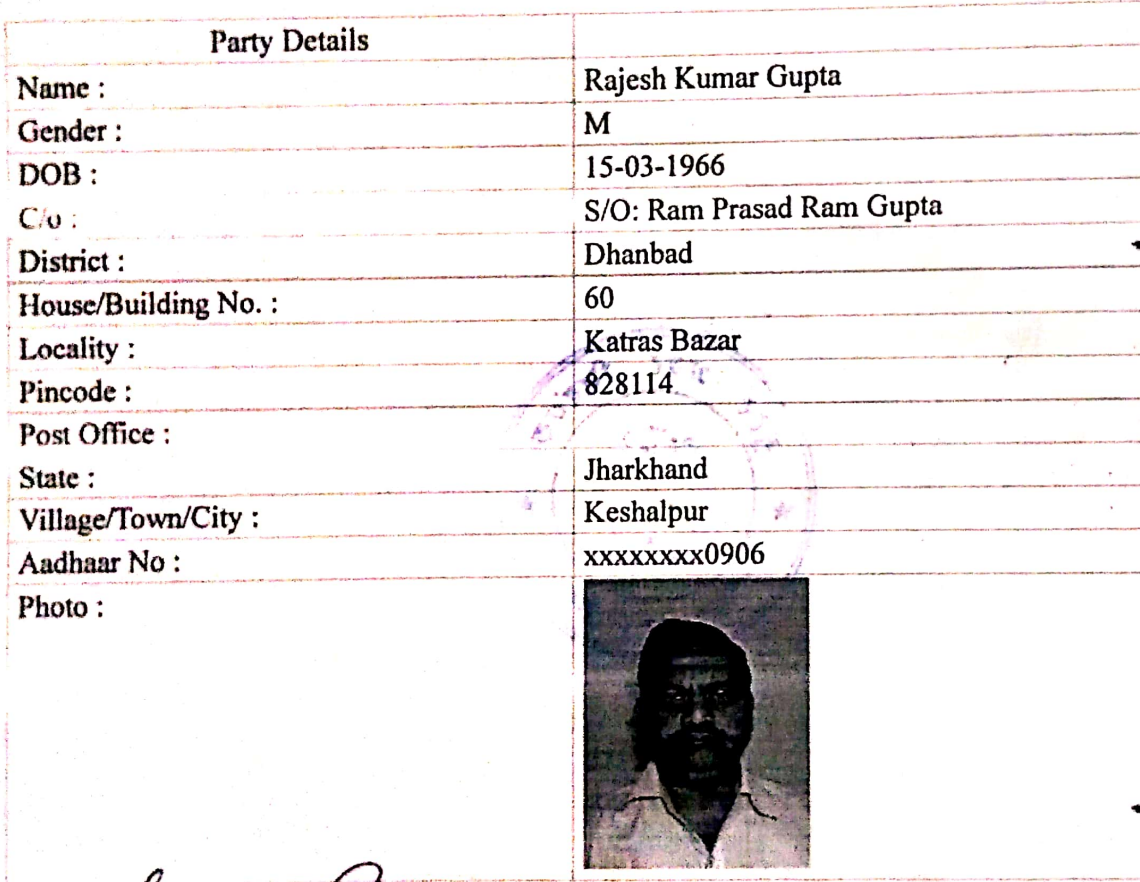 Party Details
Name : Rajesh Kumar Gupta
Gender : M
DOB : 15-03-1966
C/o : S/O: Ram Prasad Ram Gupta
District : Dhanbad
House/Building No. : 60
Locality : Katras Bazar
Pincode : 828114
Post Office :
State : Jharkhand
Village/Town/City : Keshalpur
Aadhaar No : xxxxxxxx0906
Photo :